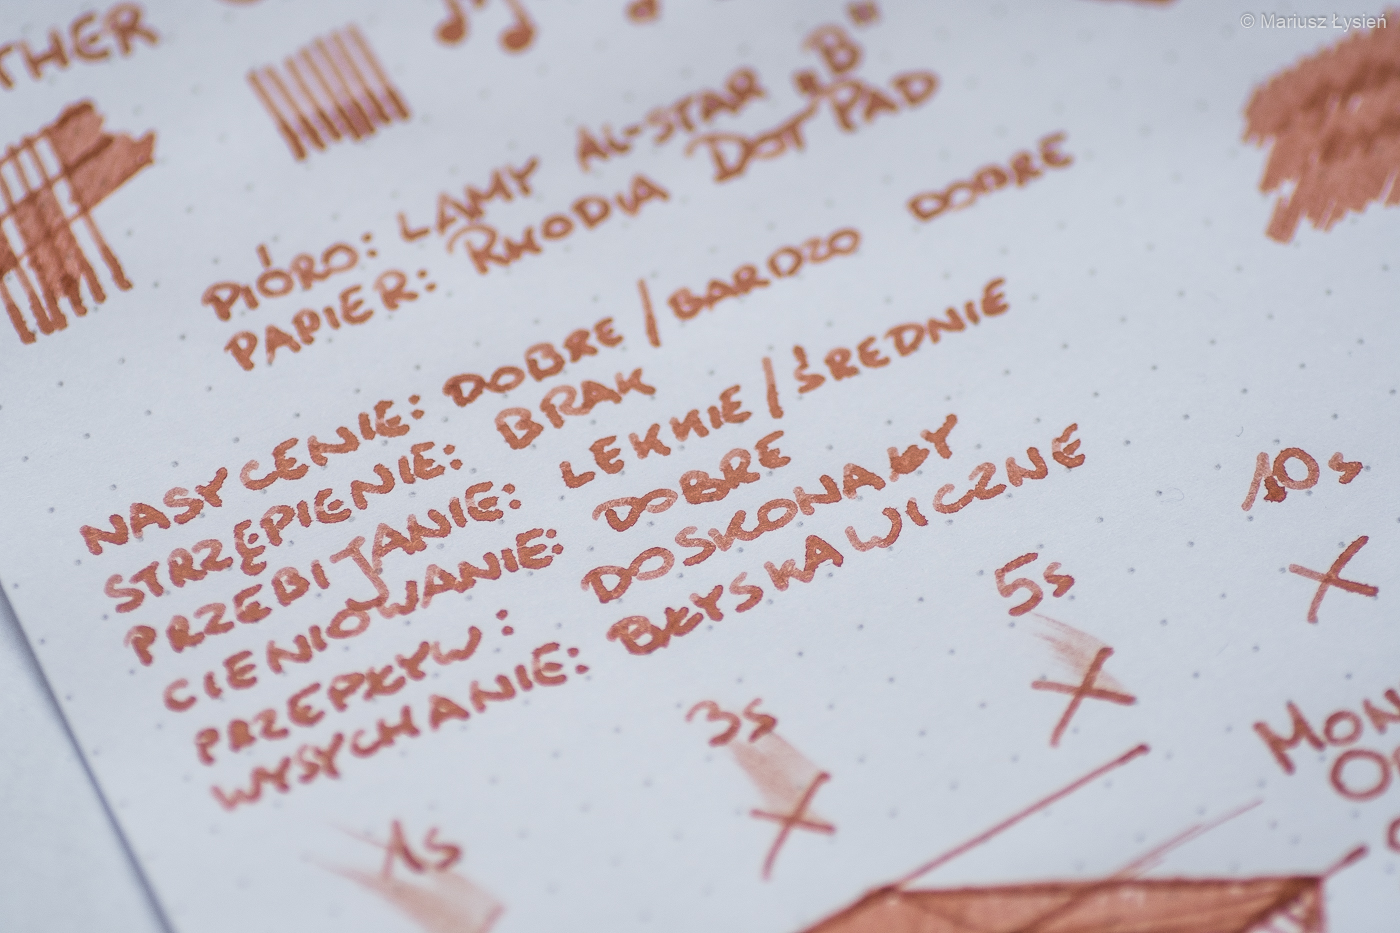 © Mariusz Łysień
THER
PIÓRO: LAMY AL-STAR „B"
PAPIER: RHODIA DOT PAD
NASYCENIE: DOBRE / BARDZO DOBRE
STRZĘPIENIE: BRAK
PRZEBIJANIE: LEKKIE / ŚREDNIE
CIENIOWANIE: DOBRE
PRZEPŁYW: DOSKONAŁY
WYSYCHANIE: BŁYSKAWICZNE
1s 3s 5s 10s
MON